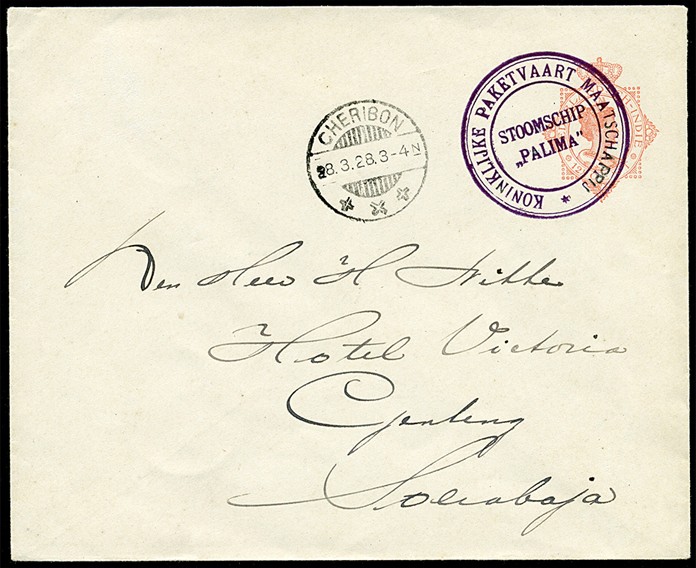 CHERIBON
28.3.28.3-4N
KONINKLIJKE PAKETVAART MAATSCHAPPIJ
STOOMSCHIP
„PALIMA"
H-INDIE
Den Heer H Witte
Hotel Victoria
Genteng
Soerabaja